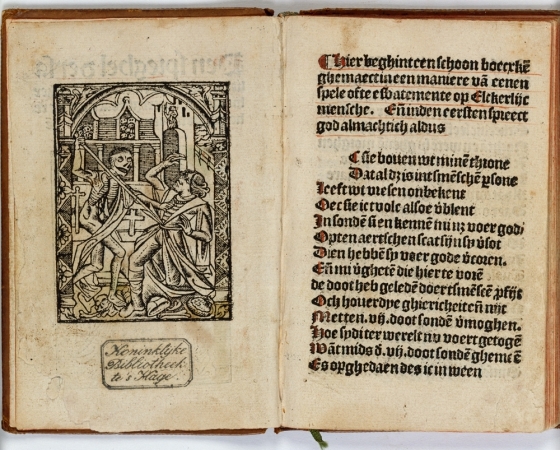 Koninklijke
Bibliotheek
te 's Hage.
¶ Hier beghint een schoon boecxkē
ghemaect in een maniere vā eenen
spele ofte esbatemente op Elckerlijc
mensche. Eñ inden eersten spreect
god almachtich aldus
Ic sie bouen wt minē throne
Dat al dz is int smēschē psone
Leeft wt vresen onbekent
Oec sie ic tvolc alsoe vblent
In sondē si en kennē mi nz voer god
Opten aertschen scat sijn sy vsot
Dien hebbē sy voer gode vcoren.
Eñ mi vghetē die hier te vorē
de doot heb geledē doer tsmēschē pfijt
Och houerdye ghiericheit eñ nijt
Metten .vij. doot sondē vmoghen.
Hoe sydi ter werelt nv voert getogē
Wāt mids d. vij. doot sondē ghemeē
Es op ghedaen des ic in ween